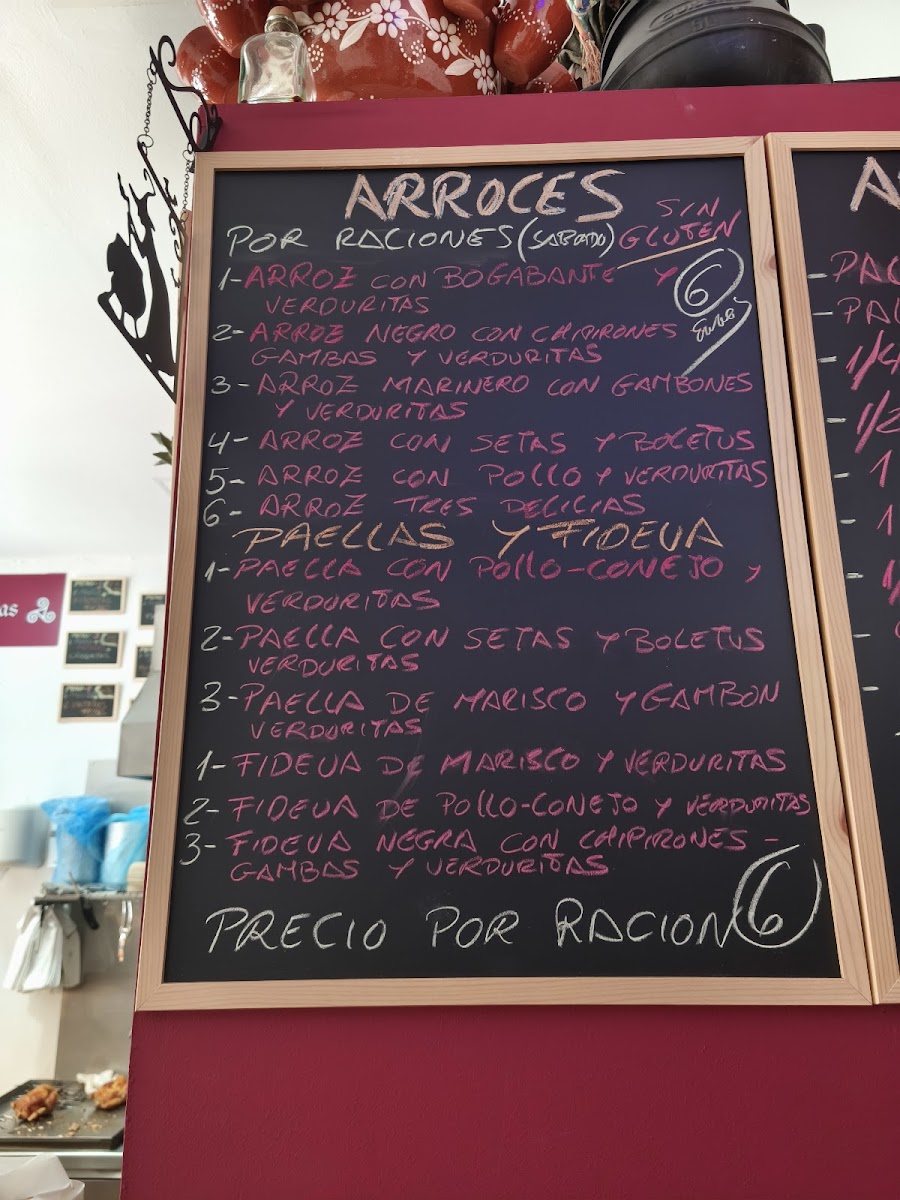 ARROCES
POR RACIONES (SABADO) SIN GLUTEN
1-ARROZ CON BOGABANTE Y
VERDURITAS
6
Euros
2-ARROZ NEGRO CON CHIPIRONES
GAMBAS Y VERDURITAS
3-ARROZ MARINERO CON GAMBONES
Y VERDURITAS
4-ARROZ CON SETAS Y BOLETUS
5-ARROZ CON POLLO Y VERDURITAS
6-ARROZ TRES DELICIAS
PAELLAS Y FIDEUA
1-PAELLA CON POLLO-CONEJO Y
VERDURITAS
2-PAELLA CON SETAS Y BOLETUS
VERDURITAS
3-PAELLA DE MARISCO Y GAMBON
VERDURITAS
1-FIDEUA DE MARISCO Y VERDURITAS
2-FIDEUA DE POLLO-CONEJO Y VERDURITAS
3-FIDEUA NEGRA CON CHIPIRONES-
GAMBAS Y VERDURITAS
PRECIO POR RACION 6
A
-PA
-PA
-1/4
-1/2
-1
-1
as